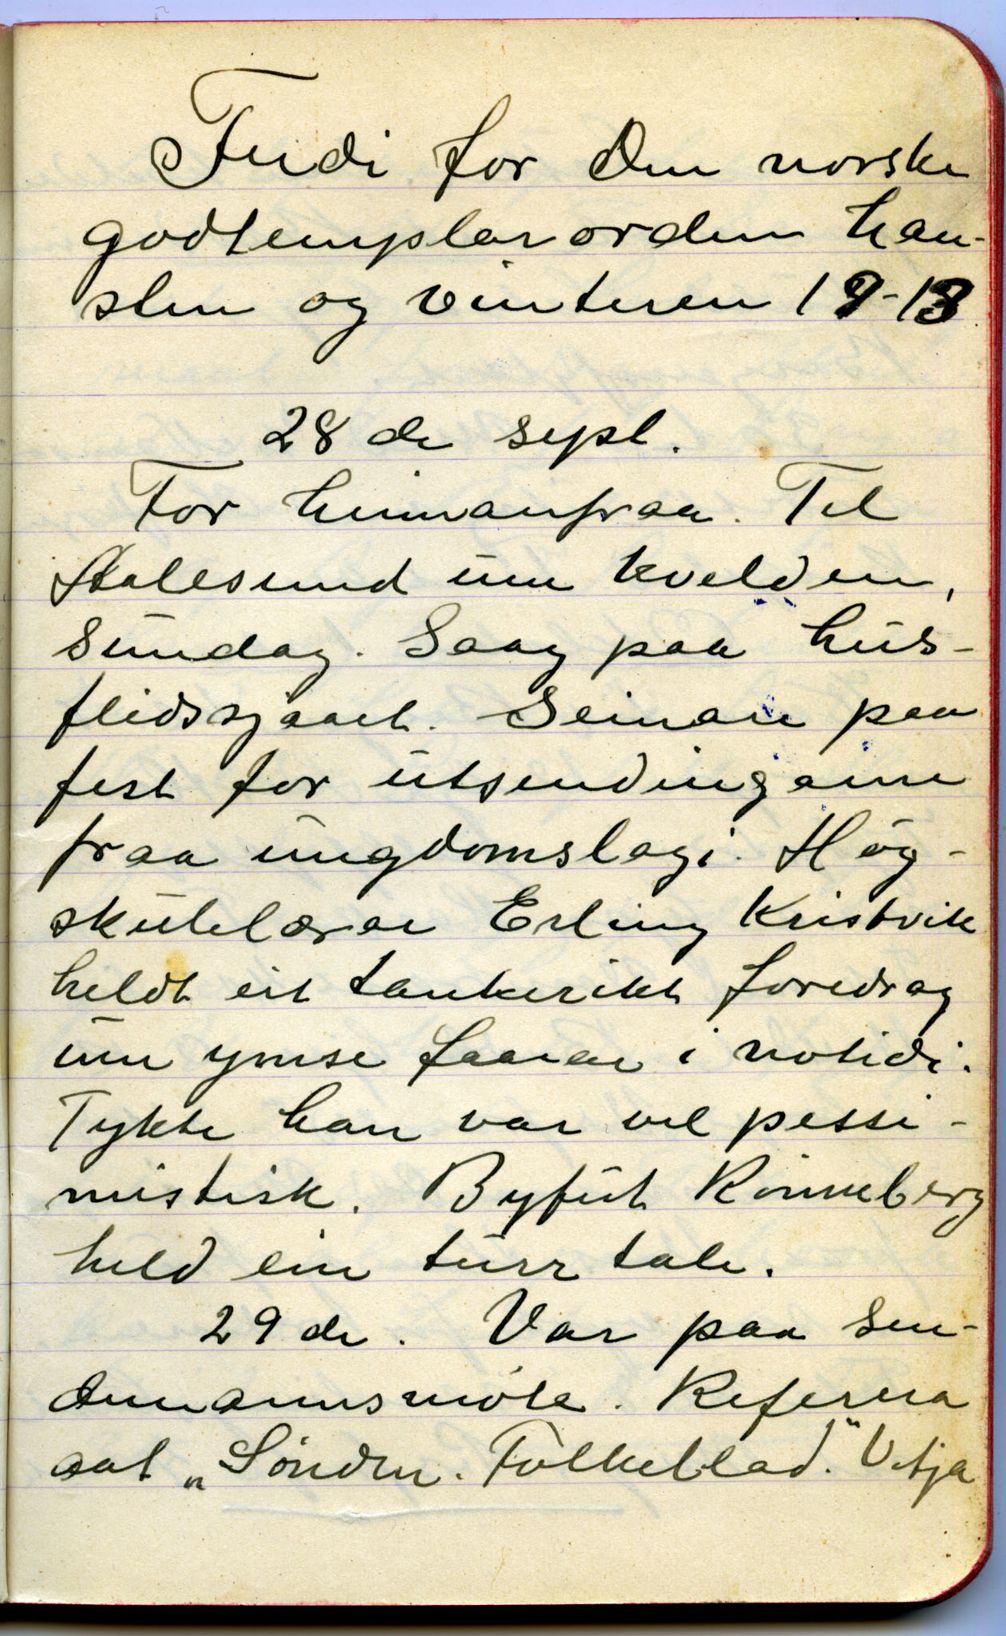 Ferdi for Den norske
godtemplarorden hau-
sten og vinteren 12-13
28 de sept.
For heimanfraa. Til
Aalesund um kvelden,
sundag. Saag paa hus-
flidssjaaet. Seinare paa
fest for utsendingane
fraa ungdomslagi. Høg-
skulelærar Erling Kristvik
heldt eit tankerikt foredrag
um ymse faarar i notidi.
Tykte han var vel pessi-
mistisk. Byfut Rønneberg
held ein turr tale.
29 de. Var paa sen-
demannsmøte. Referera
aat „Søndm. Folkeblad." Vitja